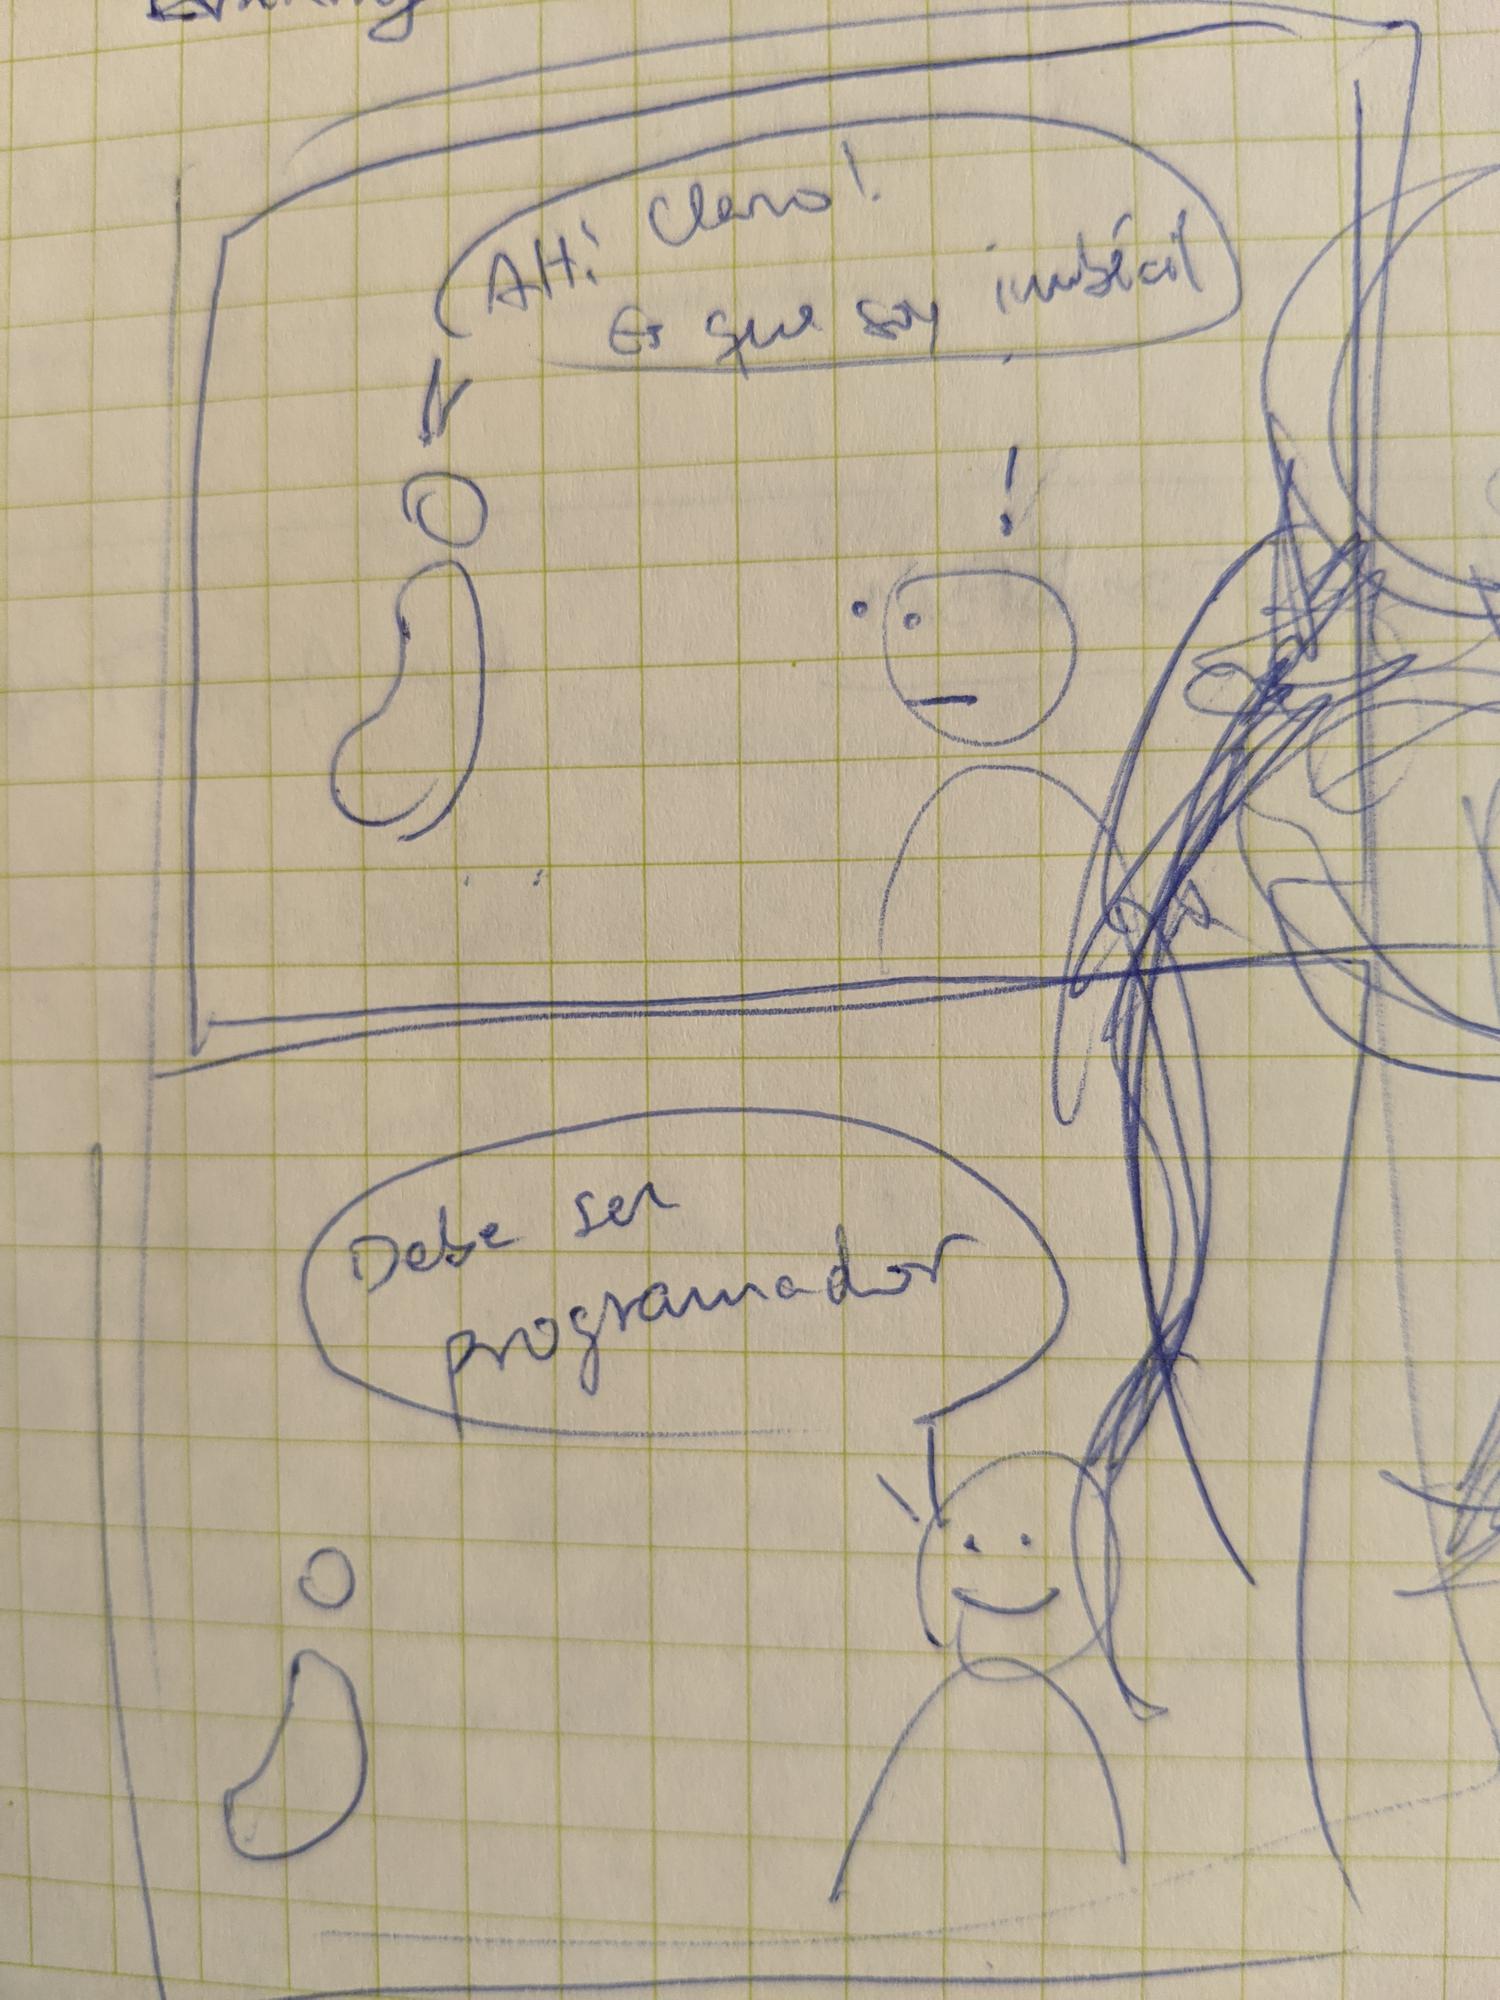 AH! Claro!
Es que soy imbécil
!
Debe ser
programador